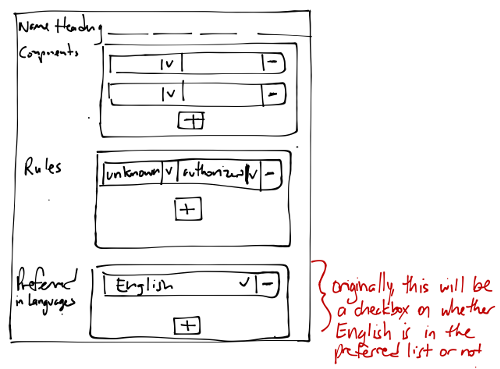 Name Heading
Components
v -
v -
+
Rules
unknown v authorized v -
+
Preferred
in languages
English v -
+
originally, this will be
a checkbox on whether
English is in the
preferred list or not